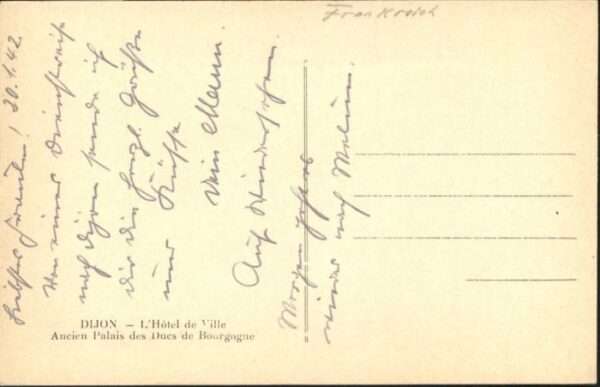 Frankreich
Liebes Frauchen! 30.1.42.
Von einer Dienstreise
nach Dijon sende ich
Dir die herzl. Grüße
und Küsse
Dein Mann.
Auf Wiedersehen.
Morgen geht es
wieder nach Melun.
DIJON — L'Hôtel de Ville
Ancien Palais des Ducs de Bourgogne